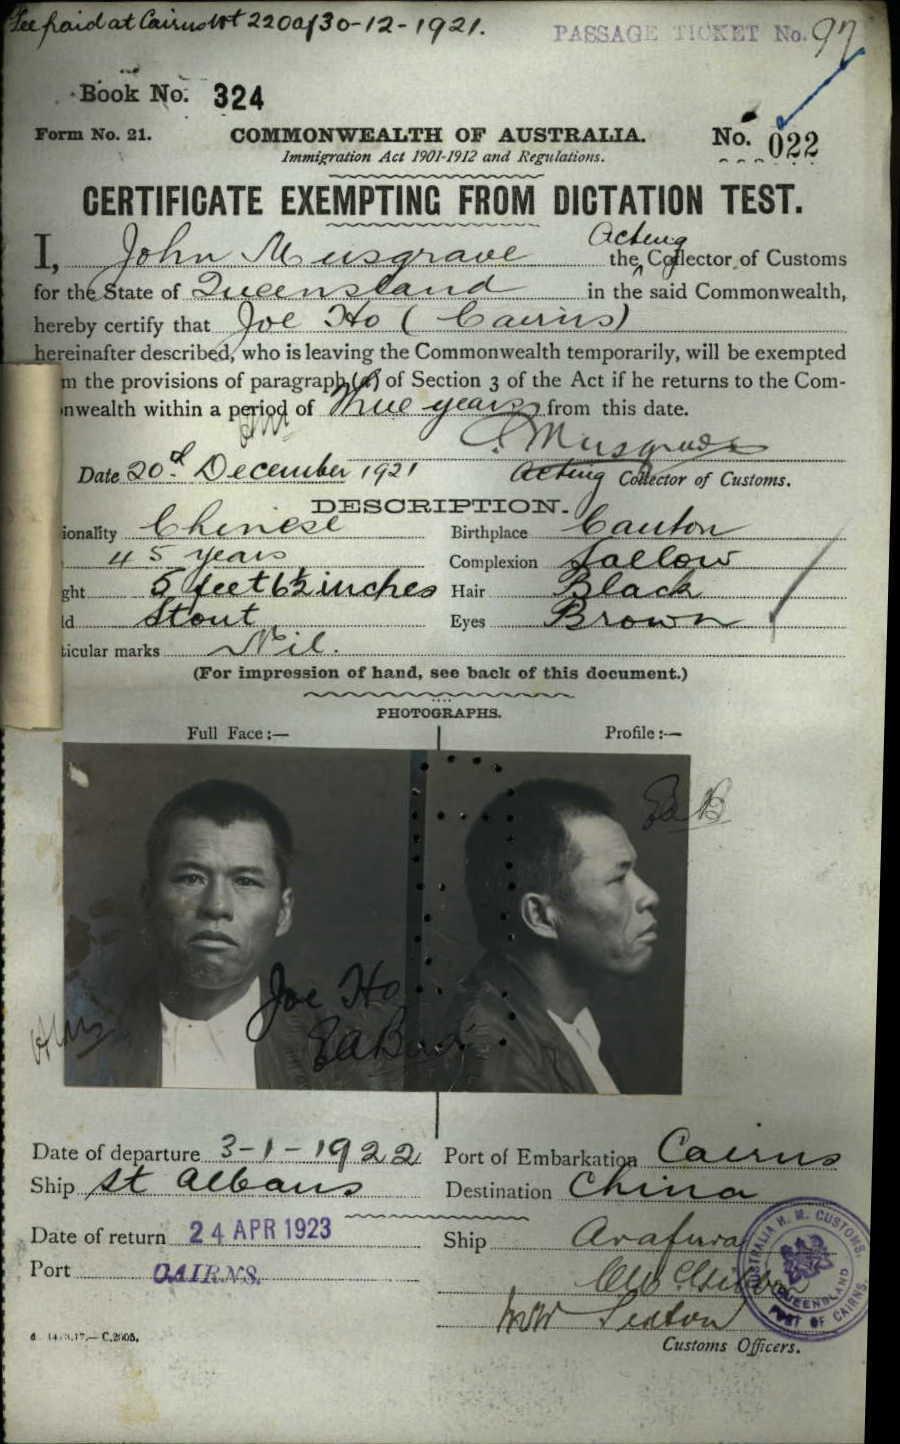 Fee paid at Cairns 30-12-1921.
PASSAGE TICKET No. 97
Book No. 324
Form No. 21. COMMONWEALTH OF AUSTRALIA. No. 022
Immigration Act 1901-1912 and Regulations.
CERTIFICATE EXEMPTING FROM DICTATION TEST.
Acting
I, John Musgrave the Collector of Customs
for the State of Queensland in the said Commonwealth,
hereby certify that Joe Ho (Cairns)
hereinafter described, who is leaving the Commonwealth temporarily, will be exempted
m the provisions of paragraph (a) of Section 3 of the Act if he returns to the Com-
onwealth within a period of Three years from this date.
Musgrave
Date 20th December 1921 Acting Collector of Customs.
DESCRIPTION.
ionality Chinese Birthplace Canton
45 years Complexion Sallow
ght 5 feet 6½ inches Hair Black
ld Stout Eyes Brown
ticular marks Nil.
(For impression of hand, see back of this document.)
PHOTOGRAPHS.
Full Face:— Profile:—
Joe Ho
Date of departure 3-1-1922 Port of Embarkation Cairns
Ship St Albans Destination China
Date of return 24 APR 1923 Ship Arafura
Port CAIRNS.
Sexton
Customs Officers.
C.2605.
AUSTRALIA H. M. CUSTOMS.
QUEENSLAND
PORT OF CAIRNS.